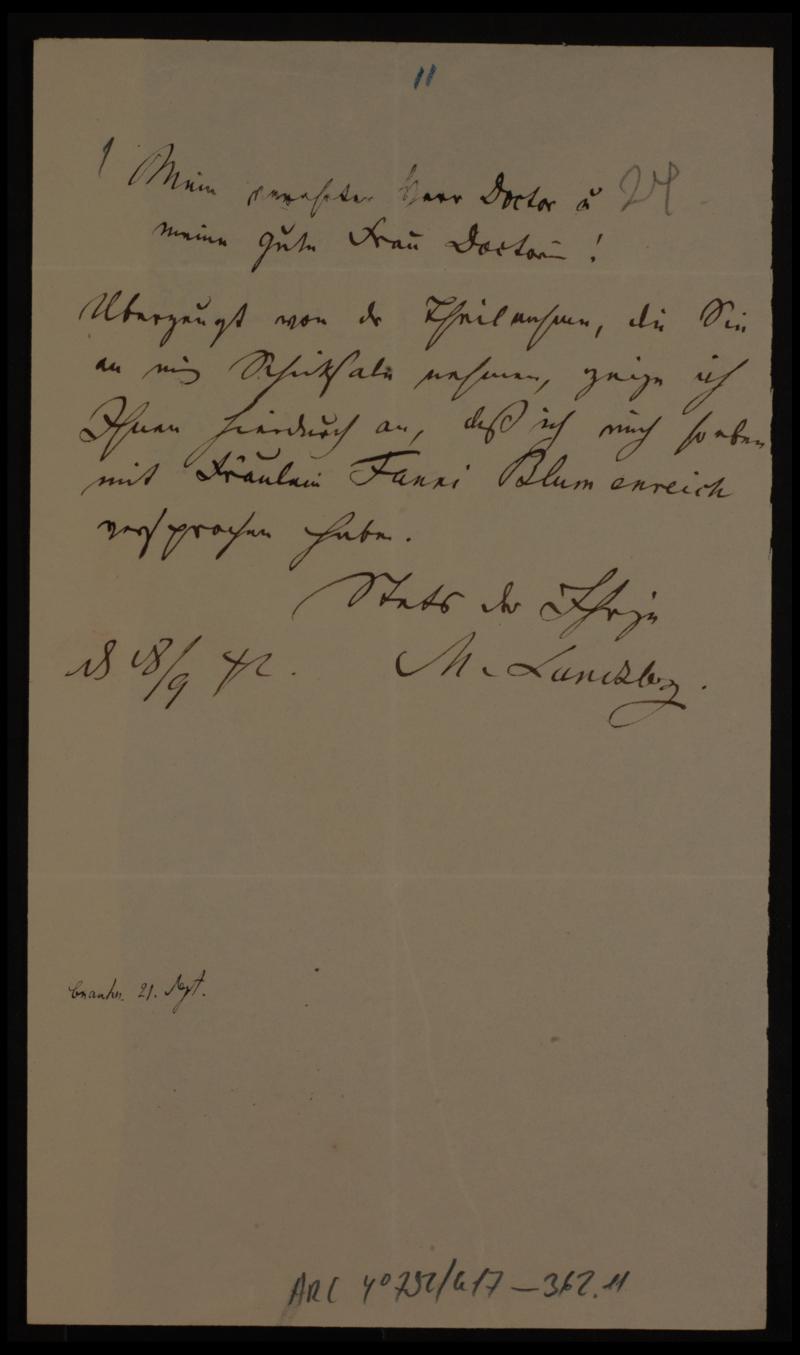 11
Mein verehrter Herr Doctor u 24
meine gute Frau Doctorin!
Uberzeugt von der Theilnahme, die Sie
an mein Schicksale nehmen, zeige ich
Ihnen hierdurch an, daß ich mich soeben
mit Fräulein Fanni Blumenreich
versprochen habe.
Stets der Ihrige
18/9 42. M. Landsberg.
beantw. 21. Sept.
ARC 4° 792/G17-362.11